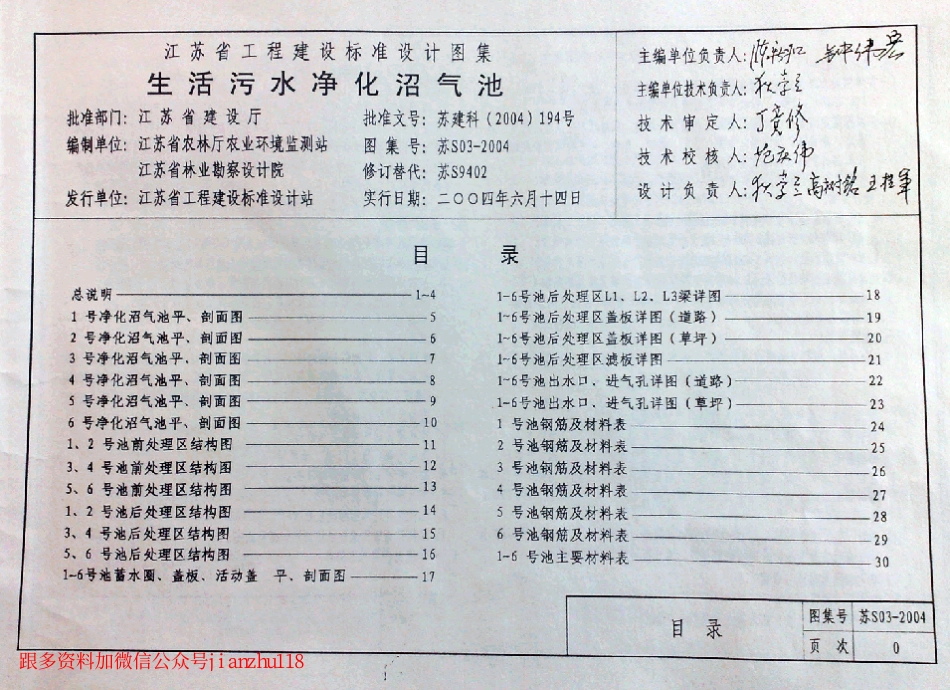 江苏省工程建设标准设计图集
生活污水净化沼气池
批准部门：江苏省建设厅
批准文号：苏建科（2004）194号
编制单位：江苏省农林厅农业环境监测站
图集号：苏S03-2004
江苏省林业勘察设计院
修订替代：苏S9402
发行单位：江苏省工程建设标准设计站
实行日期：二〇〇四年六月十四日
主编单位负责人：
主编单位技术负责人：
技术审定人：
技术校核人：
设计负责人：
目 录
总说明 1~4
1 号净化沼气池平、剖面图 5
2 号净化沼气池平、剖面图 6
3 号净化沼气池平、剖面图 7
4 号净化沼气池平、剖面图 8
5 号净化沼气池平、剖面图 9
6 号净化沼气池平、剖面图 10
1、2 号池前处理区结构图 11
3、4 号池前处理区结构图 12
5、6 号池前处理区结构图 13
1、2 号池后处理区结构图 14
3、4 号池后处理区结构图 15
5、6 号池后处理区结构图 16
1-6号池蓄水圈、盖板、活动盖 平、剖面图 17
1-6号池后处理区L1、L2、L3梁详图 18
1~6号池后处理区盖板详图（道路） 19
1-6号池后处理区盖板详图（草坪） 20
1-6号池后处理区滤板详图 21
1~6号池出水口、进气孔详图（道路） 22
1-6号池出水口、进气孔详图（草坪） 23
1 号池钢筋及材料表 24
2 号池钢筋及材料表 25
3 号池钢筋及材料表 26
4 号池钢筋及材料表 27
5 号池钢筋及材料表 28
6 号池钢筋及材料表 29
1-6 号池主要材料表 30
目 录
图集号 苏S03-2004
页 次 0
跟多资料加微信公众号jianzhu118